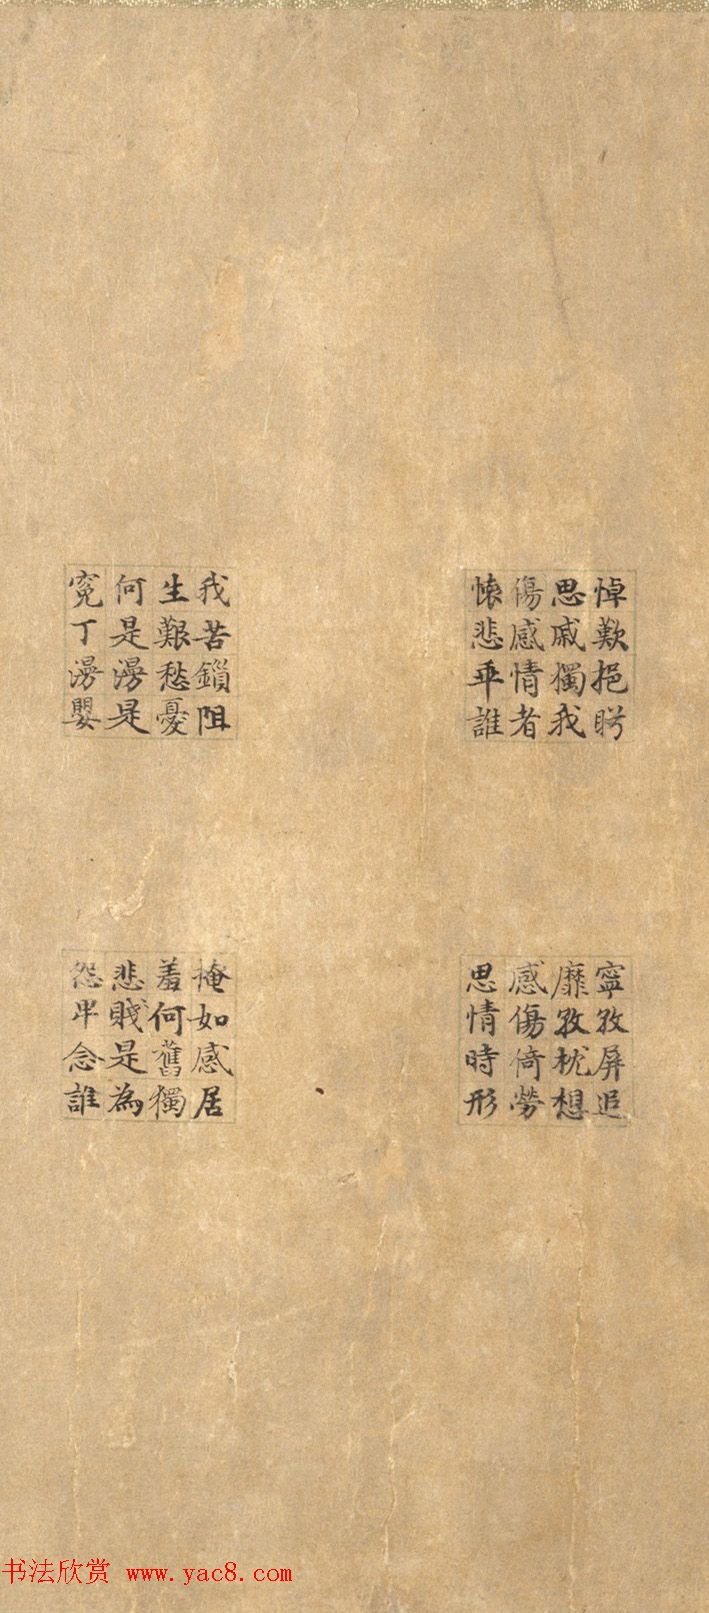 悼歎挹
思戚獨我
傷感情者
懷悲誰
我苦鎖阻
生艱愁憂
何是漫是
冤丁漫嬰
寧孜屏
靡孜枕想
感傷倚勞
思情時形
掩如感居
羞何舊獨
悲賤是為
怨念誰
书法欣赏 www.yac8.com